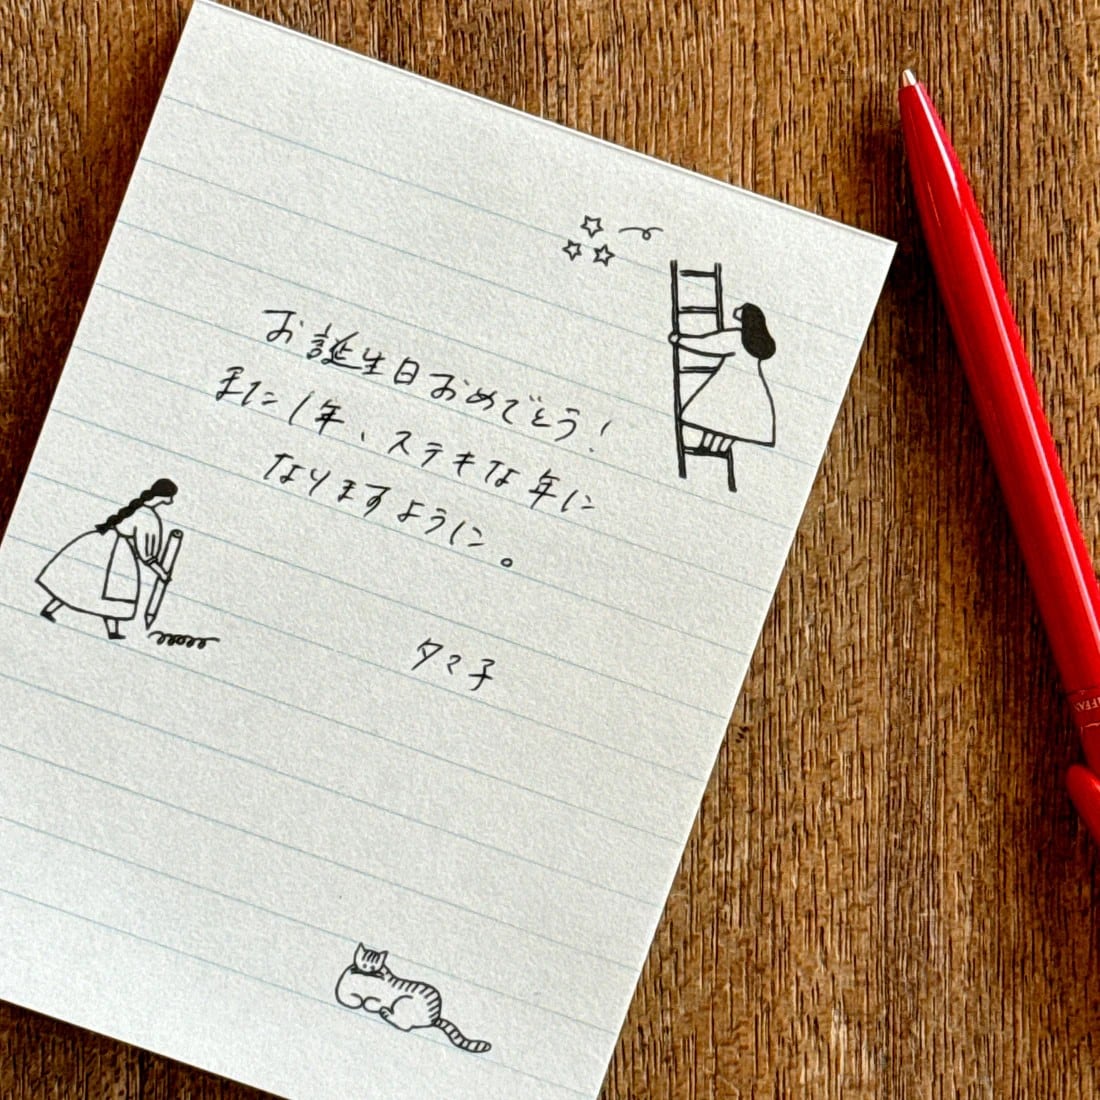 お誕生日おめでとう！
また1年、ステキな年に
なりますように。
タマ子